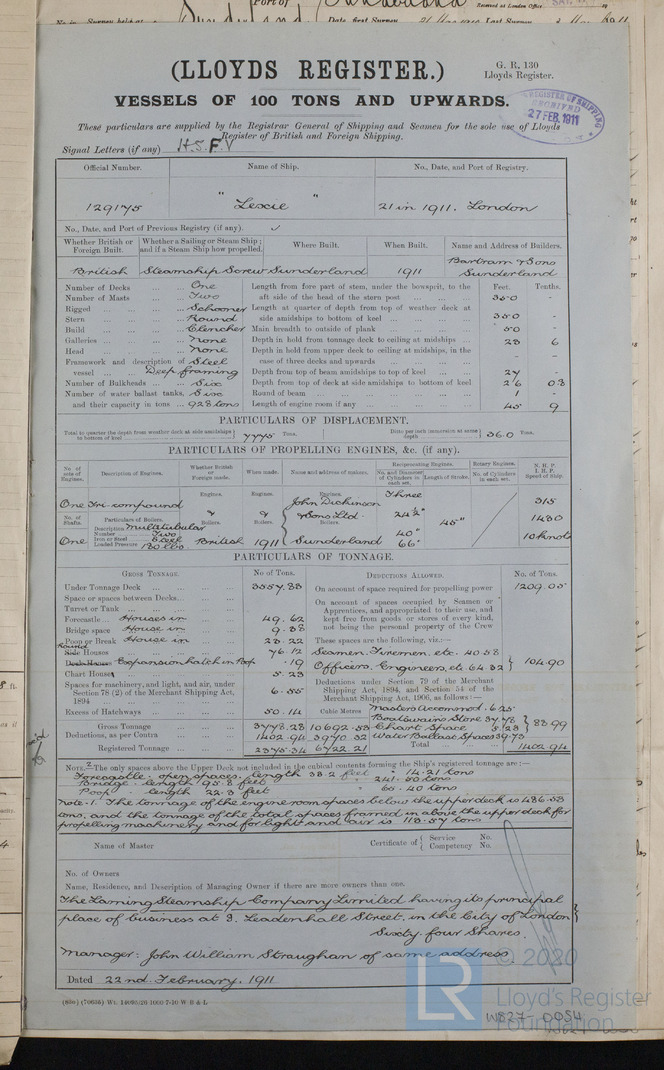 Port of Sunderland Received at London Office
No. in Survey held at Date, first Survey Last Survey
(LLOYDS REGISTER.)
G. R. 130
Lloyds Register.
VESSELS OF 100 TONS AND UPWARDS.
REGISTER OF SHIPPING
RECEIVED
27 FEB. 1911
These particulars are supplied by the Registrar General of Shipping and Seamen for the sole use of Lloyds
Register of British and Foreign Shipping.
Signal Letters (if any) H.S.F.V
Official Number. Name of Ship. No., Date, and Port of Registry.
129175 " Lexie " 21 in 1911. London
No., Date, and Port of Previous Registry (if any).
Whether British or Foreign Built. Whether a Sailing or Steam Ship; and if a Steam Ship how propelled. Where Built. When Built. Name and Address of Builders.
British Steamship Screw Sunderland 1911 Bartram & Sons Sunderland
Number of Decks One Length from fore part of stem, under the bowsprit, to the Feet. Tenths.
Number of Masts Two aft side of the head of the stern post 350 -
Rigged Schooner Length at quarter of depth from top of weather deck at
Stern Round side amidships to bottom of keel 350 -
Build Clencher Main breadth to outside of plank 50 -
Galleries None Depth in hold from tonnage deck to ceiling at midships 23 6
Head None Depth in hold from upper deck to ceiling at midships, in the
Framework and description of Steel case of three decks and upwards - -
vessel Deep framing Depth from top of beam amidships to top of keel 27 -
Number of Bulkheads Six Depth from top of deck at side amidships to bottom of keel 26 03
Number of water ballast tanks, Six Round of beam 1 -
and their capacity in tons 928 tons Length of engine room if any 45 9
PARTICULARS OF DISPLACEMENT.
Total to quarter the depth from weather deck at side amidships to bottom of keel 7775 Tons. Ditto per inch immersion at same depth 36.0 Tons.
PARTICULARS OF PROPELLING ENGINES, &c. (if any).
No. of sets of Engines. Description of Engines. Whether British or Foreign made. When made. Name and address of makers. Reciprocating Engines. Rotary Engines. N. H. P. I. H. P. Speed of Ship.
No. and Diameter of Cylinders in each set. Length of Stroke. No. of Cylinders in each set.
Engines. Engines. Engines. Three
One Tri-compound John Dickinson 315
No. of Shafts. Particulars of Boilers. & Sons Ltd 24½" 1480
Description Multitubular Boilers. Boilers. Boilers. 45"
Number Two 40"
One Iron or Steel Steel British 1911 Sunderland 66" 10 knots
Loaded Pressure 180 lbs.
PARTICULARS OF TONNAGE.
GROSS TONNAGE. No of Tons. DEDUCTIONS ALLOWED. No. of Tons.
Under Tonnage Deck 3557.83 On account of space required for propelling power 1209.05
Space or spaces between Decks On account of spaces occupied by Seamen or
Turret or Tank Apprentices, and appropriated to their use, and
Forecastle Houses in 49.62 kept free from goods or stores of every kind,
Bridge space House in 9.88 not being the personal property of the Crew
Poop or Break House in 23.22 These spaces are the following, viz.:—
Round
Side Houses 76.12 Seamen, Firemen, etc. 40.58
Deck Houses Expansion hatch in Poop .19 Officers, Engineers, etc. 64.32 104.90
Chart House 5.23 Deductions under Section 79 of the Merchant
Spaces for machinery, and light, and air, under Shipping Act, 1894, and Section 54 of the
Section 78 (2) of the Merchant Shipping Act, 1894 6.55 Merchant Shipping Act, 1906, as follows:—
Excess of Hatchways 50.14 Cubic Metres Masters Accommod. 6.25
Boatswains Store 37.78
Gross Tonnage 3778.28 10692.53 Chart Space 5.23 88.99
Deductions, as per Contra 1402.94 3970.32 Water Ballast Spaces 39.73
Registered Tonnage 2375.34 6722.21 Total 1402.94
NOTE.—The only spaces above the Upper Deck not included in the cubical contents forming the Ship's registered tonnage are:—
Forecastle: open spaces, length 38.2 feet " 14.21 tons
Bridge: length 95.8 feet " 241.60 tons
Poop " length 22.3 feet " 65.40 tons
Note.1. The tonnage of the engine room spaces below the upper deck is 486.53
tons, and the tonnage of the total spaces framed in above the upper deck for
propelling machinery and for light and air is 113.57 tons
Name of Master Certificate of Service No.
Competency No.
No. of Owners
Name, Residence, and Description of Managing Owner if there are more owners than one.
The Laming Steamship Company Limited having its principal
place of business at 3. Leadenhall Street, in the City of London
Sixty four Shares.
Manager: John William Straughan of same address
Dated 22nd. February. 1911
(830) (70658) Wt. 14095/26 1000 7-10 W B & L
© 2020
LR
Lloyd's Register
Foundation
W827-0054